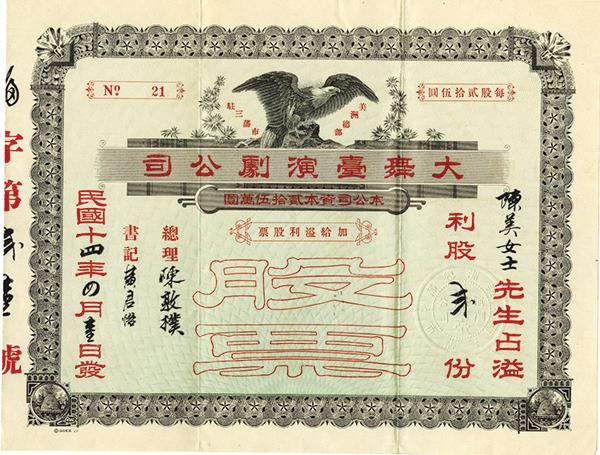 No 21
每股貳拾伍圓
美洲總部
駐三藩市
大舞臺演劇公司
本公司資本貳拾伍萬圓
加給溢利股票
陳美女士先生占溢
利股 弍 份
股票
總理 陳敦樸
書記
民國十四年四月壹日發
字第 弍 壹 號